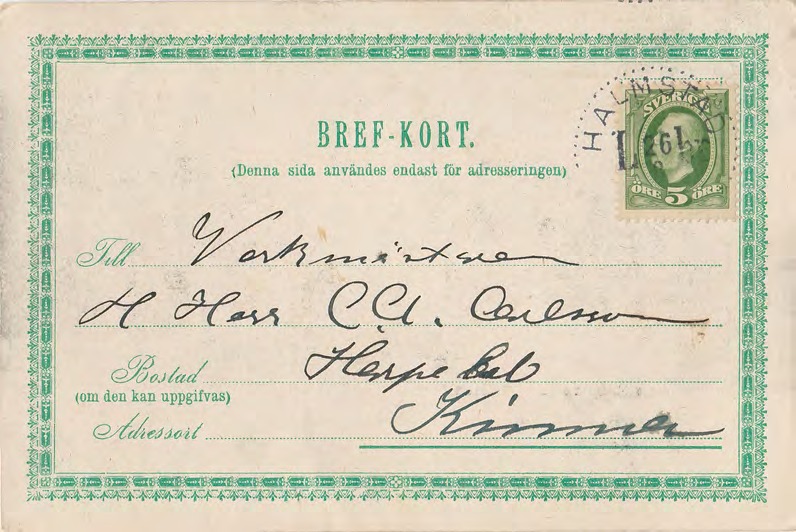 HALMSTAD
SVERIGE
L 26 1
ÖRE 5 ÖRE
BREF-KORT.
(Denna sida användes endast för adresseringen)
Till Verkmästaren
H Herr C.A. Carlsson
Bostad
(om den kan uppgifvas)
Adressort